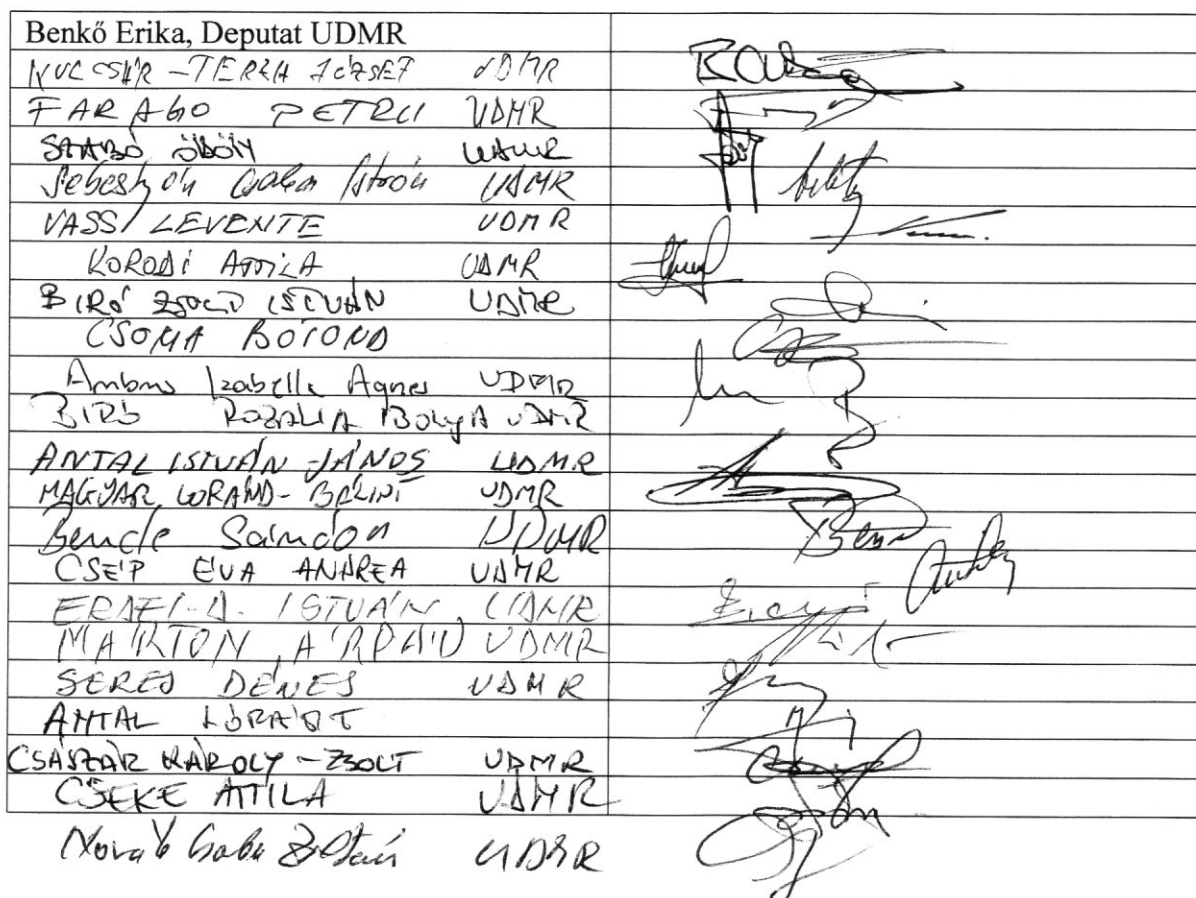 Benkő Erika, Deputat UDMR
KULCSÁR-TERZA JÓZSEF UDMR
FARAGO PETRU UDMR
SZABÓ ÖDÖN UDMR
Sebestyén Csaba István UDMR
VASS LEVENTE UDMR
KORODI ATTILA UDMR
BIRÓ ZSOLT ISTVÁN UDMR
CSOMA BOTOND
Ambrus Izabella Agnes UDMR
BIRÓ ROZALIA IBOLYA UDMR
ANTAL ISTVÁN-JÁNOS UDMR
MAGYAR LORAND-BÁLINT UDMR
Bende Sándor UDMR
CSÉP EVA ANDREA UDMR
ISTVÁN UDMR
MÁRTON ÁRPÁD UDMR
SERES DÉNES UDMR
ANTAL LÓRÁNT
CSÁSZÁR KÁROLY-ZSOLT UDMR
CSEKE ATTILA UDMR
Novák Csaba Zoltán UDMR